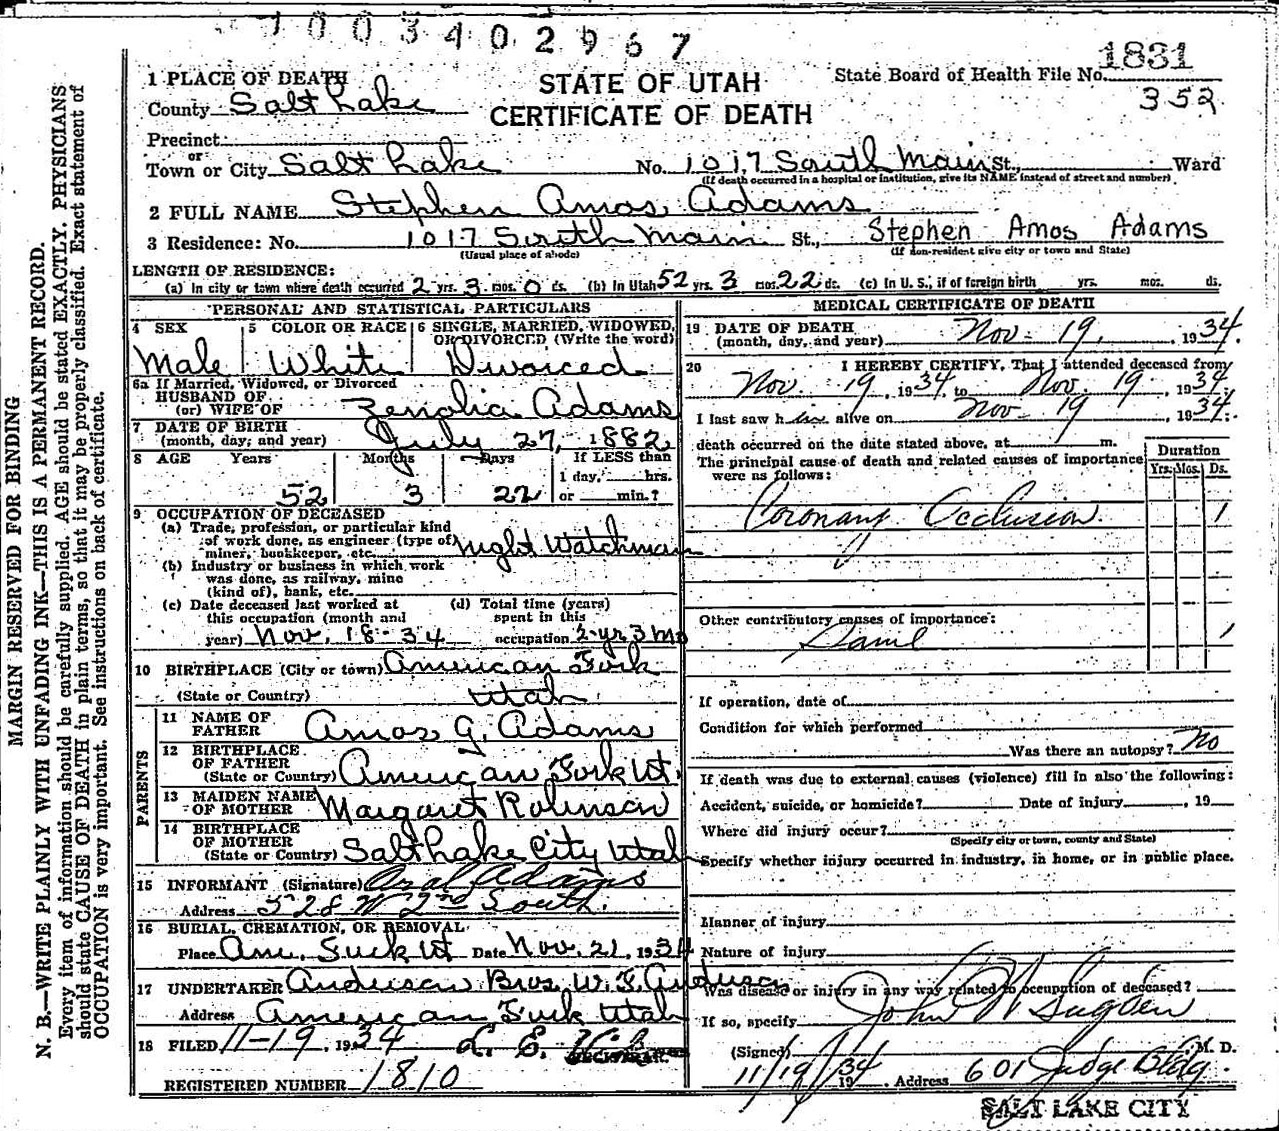 7003402967
1831
352
STATE OF UTAH
CERTIFICATE OF DEATH
State Board of Health File No.
MARGIN RESERVED FOR BINDING
N. B.—WRITE PLAINLY WITH UNFADING INK—THIS IS A PERMANENT RECORD.
Every item of information should be carefully supplied. AGE should be stated EXACTLY. PHYSICIANS
should state CAUSE OF DEATH in plain terms, so that it may be properly classified. Exact statement of
OCCUPATION is very important. See instructions on back of certificate.
1 PLACE OF DEATH
County Salt Lake
Precinct
or
Town or City Salt Lake No. 1017 South Main St., Ward
(If death occurred in a hospital or institution, give its NAME instead of street and number)
2 FULL NAME Stephen Amos Adams
3 Residence: No. 1017 South Main St., Stephen Amos Adams
(Usual place of abode) (If non-resident give city or town and State)
LENGTH OF RESIDENCE:
(a) In city or town where death occurred 2 yrs. 3 mos. 0 ds. (b) In Utah 52 yrs. 3 mos. 22 ds. (c) In U. S., if of foreign birth yrs. mos. ds.
PERSONAL AND STATISTICAL PARTICULARS
4 SEX 5 COLOR OR RACE 6 SINGLE, MARRIED, WIDOWED,
OR DIVORCED (Write the word)
Male White Divorced
6a If Married, Widowed, or Divorced
HUSBAND OF
(or) WIFE OF Zenolia Adams
7 DATE OF BIRTH
(month, day, and year) July 27, 1882
8 AGE Years Months Days If LESS than
1 day, hrs.
52 3 22 or min.?
9 OCCUPATION OF DECEASED
(a) Trade, profession, or particular kind
of work done, as engineer (type of)
miner, bookkeeper, etc. Night Watchman
(b) Industry or business in which work
was done, as railway, mine
(kind of), bank, etc.
(c) Date deceased last worked at (d) Total time (years)
this occupation (month and spent in this
year) Nov. 18-34 occupation 2 yr 3 mo
10 BIRTHPLACE (City or town) American Fork
(State or Country) Utah
PARENTS
11 NAME OF
FATHER Amos G. Adams
12 BIRTHPLACE
OF FATHER
(State or Country) American Fork Ut.
13 MAIDEN NAME
OF MOTHER Margaret Robinson
14 BIRTHPLACE
OF MOTHER
(State or Country) Salt Lake City Utah
15 INFORMANT (Signature) Adams
Address 528 W 2nd South.
16 BURIAL, CREMATION, OR REMOVAL
Place Am. Fork Ut Date Nov. 21, 1934
17 UNDERTAKER Anderson Bros W. F. Anderson
Address American Fork Utah
18 FILED 11-19, 1934 L. E.
REGISTRAR.
REGISTERED NUMBER 1810
MEDICAL CERTIFICATE OF DEATH
19 DATE OF DEATH
(month, day, and year) Nov- 19, 1934.
20 I HEREBY CERTIFY, That I attended deceased from
Nov. 19, 1934, to Nov. 19, 1934
I last saw him alive on Nov- 19 1934.
death occurred on the date stated above, at m.
The principal cause of death and related causes of importance
were as follows:
Duration
Yrs. Mos. Ds.
Coronary Occlusion. 1
Other contributory causes of importance:
Same 1
If operation, date of
Condition for which performed
Was there an autopsy? No
If death was due to external causes (violence) fill in also the following:
Accident, suicide, or homicide? Date of injury , 19
Where did injury occur?
(Specify city or town, county and State)
Specify whether injury occurred in industry, in home, or in public place.
Manner of injury
Nature of injury
Was disease or injury in any way related to occupation of deceased?
If so, specify
(Signed) John W Sugden M. D.
11/19/34 19 , Address 601 Judge Bldg.
SALT LAKE CITY